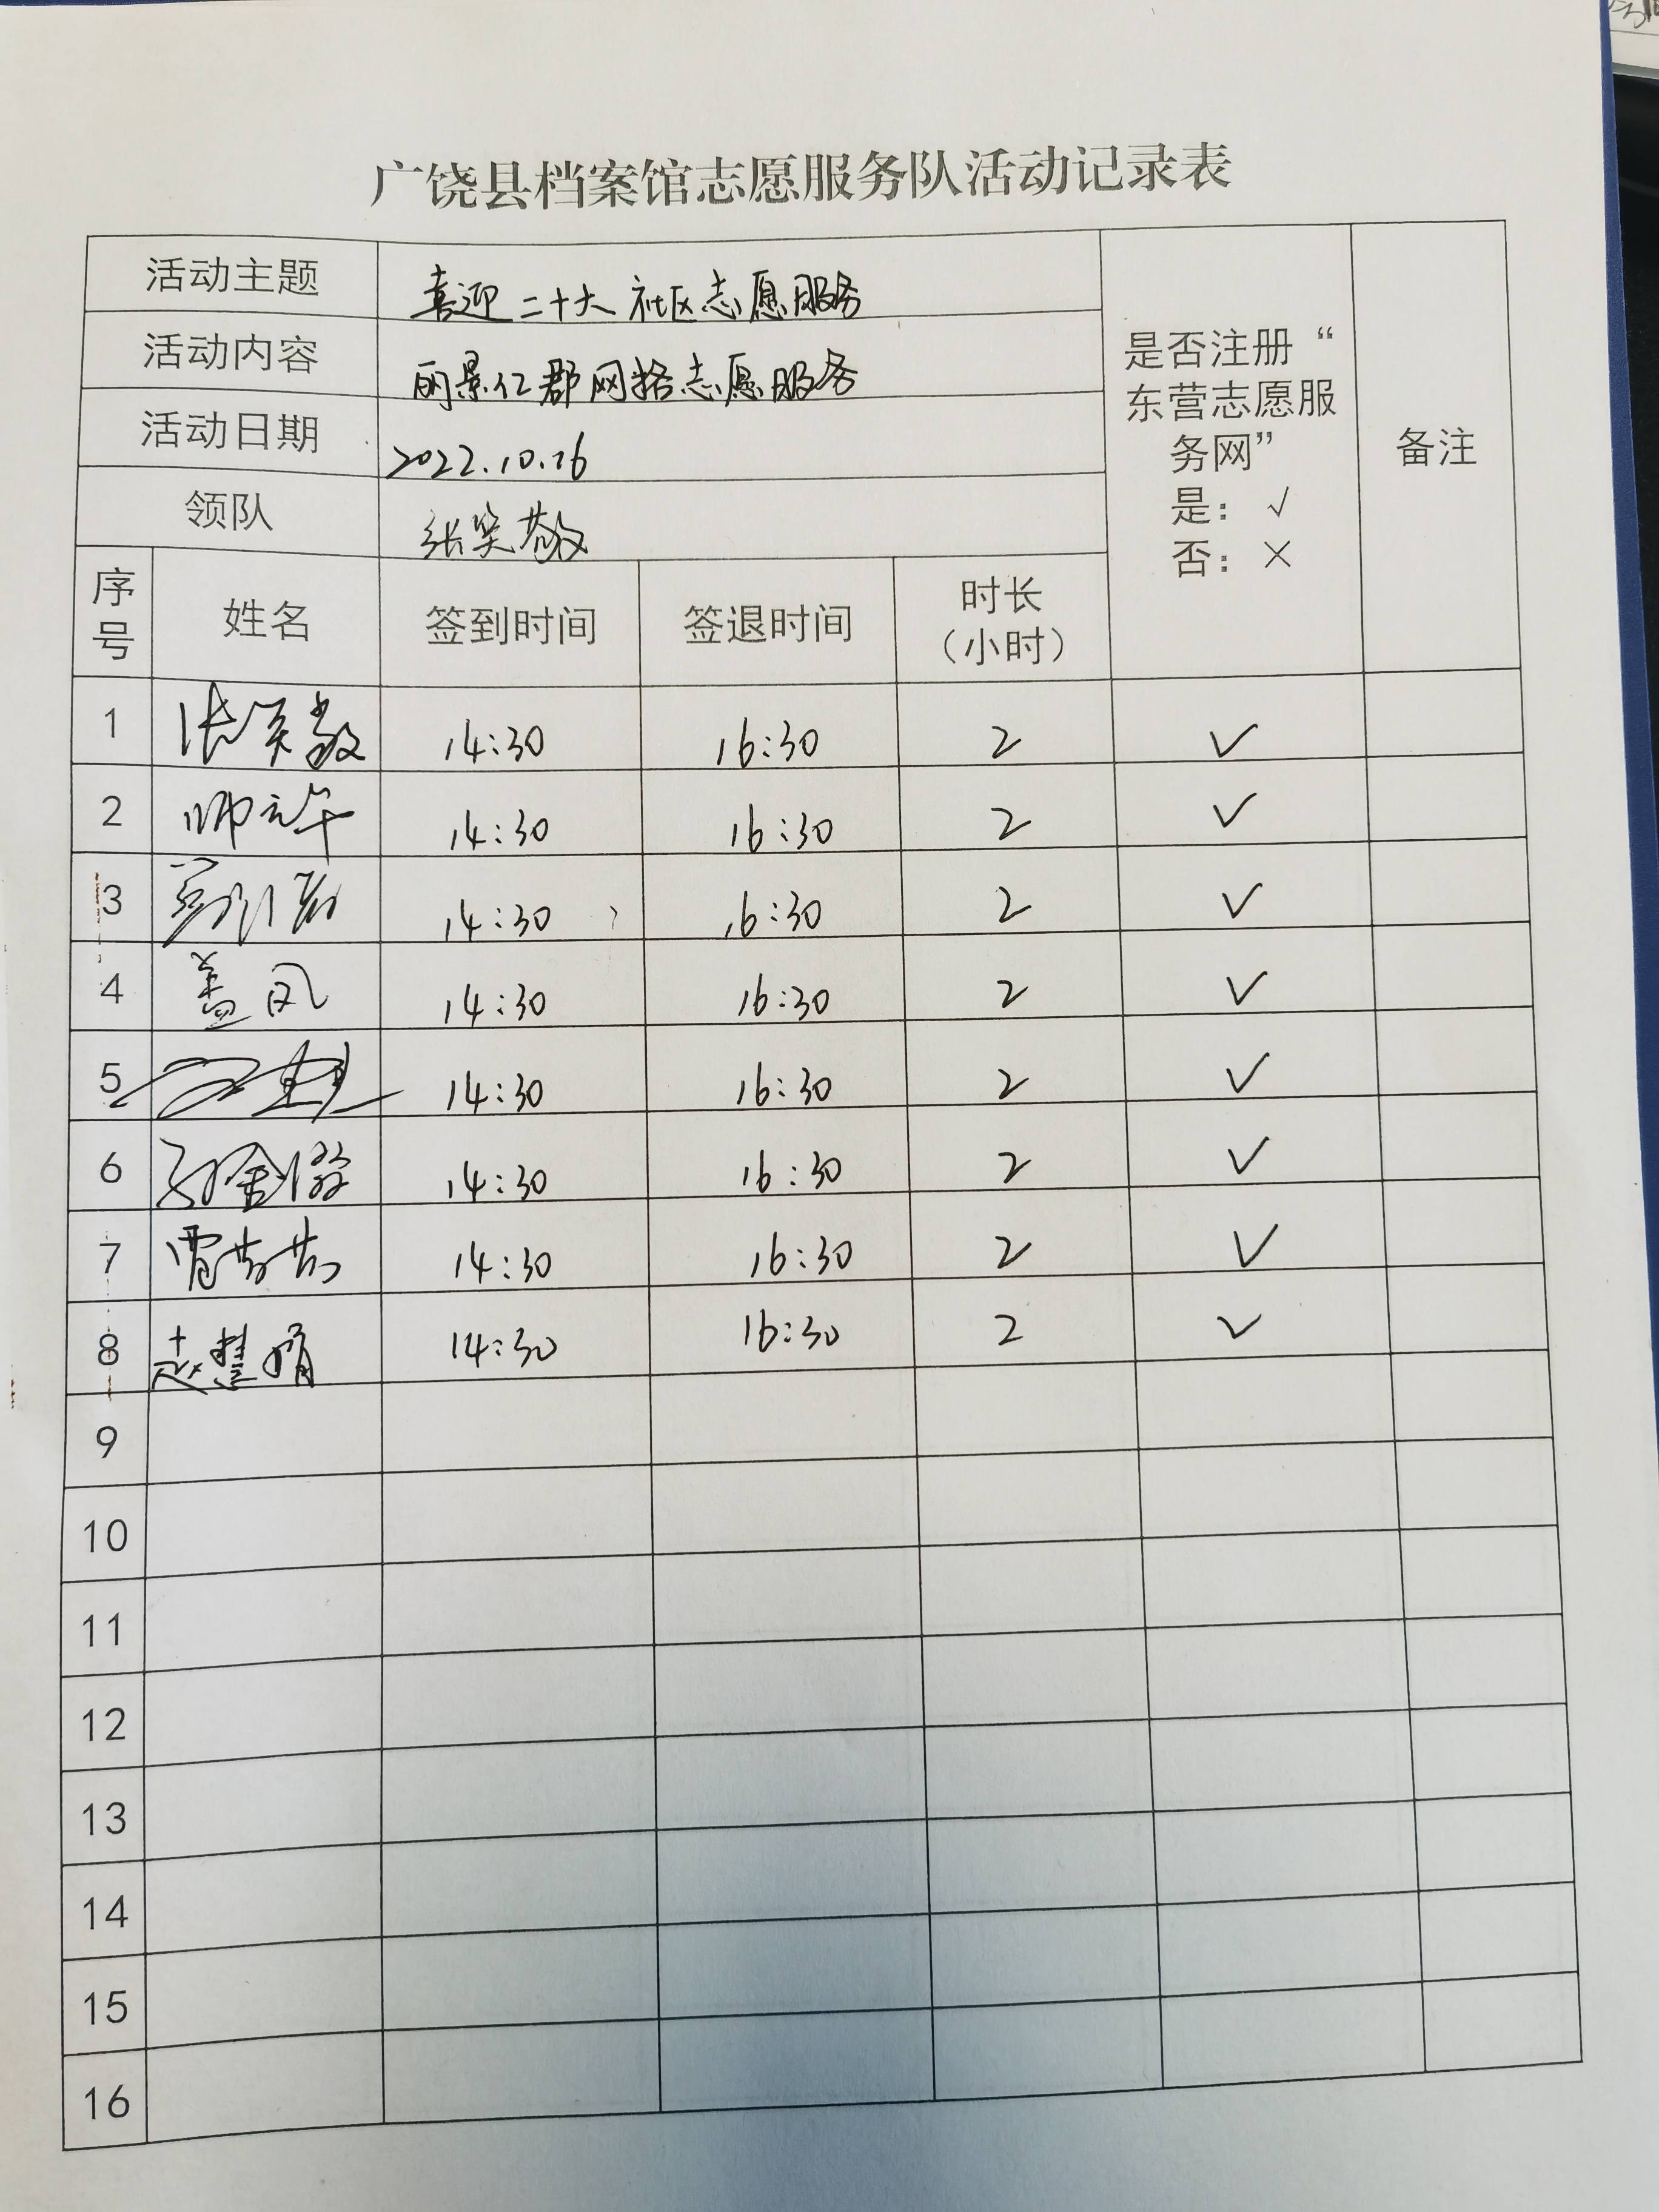 广饶县档案馆志愿服务队活动记录表
活动主题 喜迎二十大社区志愿服务
活动内容 丽景仁郡网格志愿服务
活动日期 2022.10.26
领队 张笑敬
是否注册“
东营志愿服
务网”
是：√
否：×
备注
序号 姓名 签到时间 签退时间 时长（小时）
1 张笑敬 14:30 16:30 2 √
2 14:30 16:30 2 √
3 14:30 16:30 2 √
4 盖凤 14:30 16:30 2 √
5 14:30 16:30 2 √
6 14:30 16:30 2 √
7 14:30 16:30 2 √
8 赵慧娟 14:30 16:30 2 √
9
10
11
12
13
14
15
16